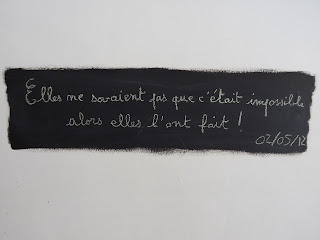 Elles ne savaient pas que c'était impossible
alors elles l'ont fait !
02/05/12